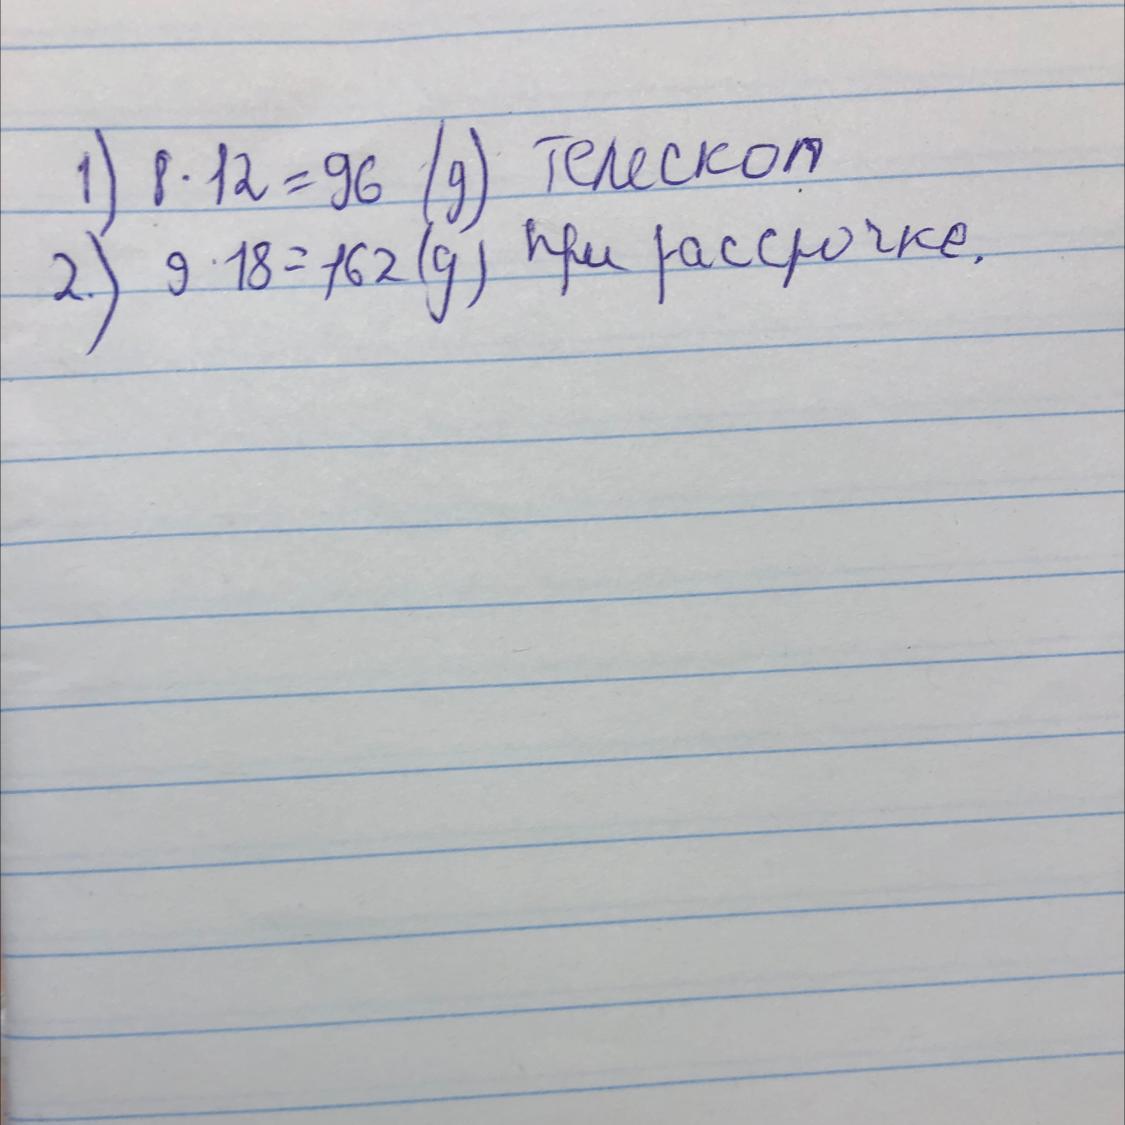 1) 8·12=96 (д) телескоп
2.) 9·18=162 (д) при рассрочке.